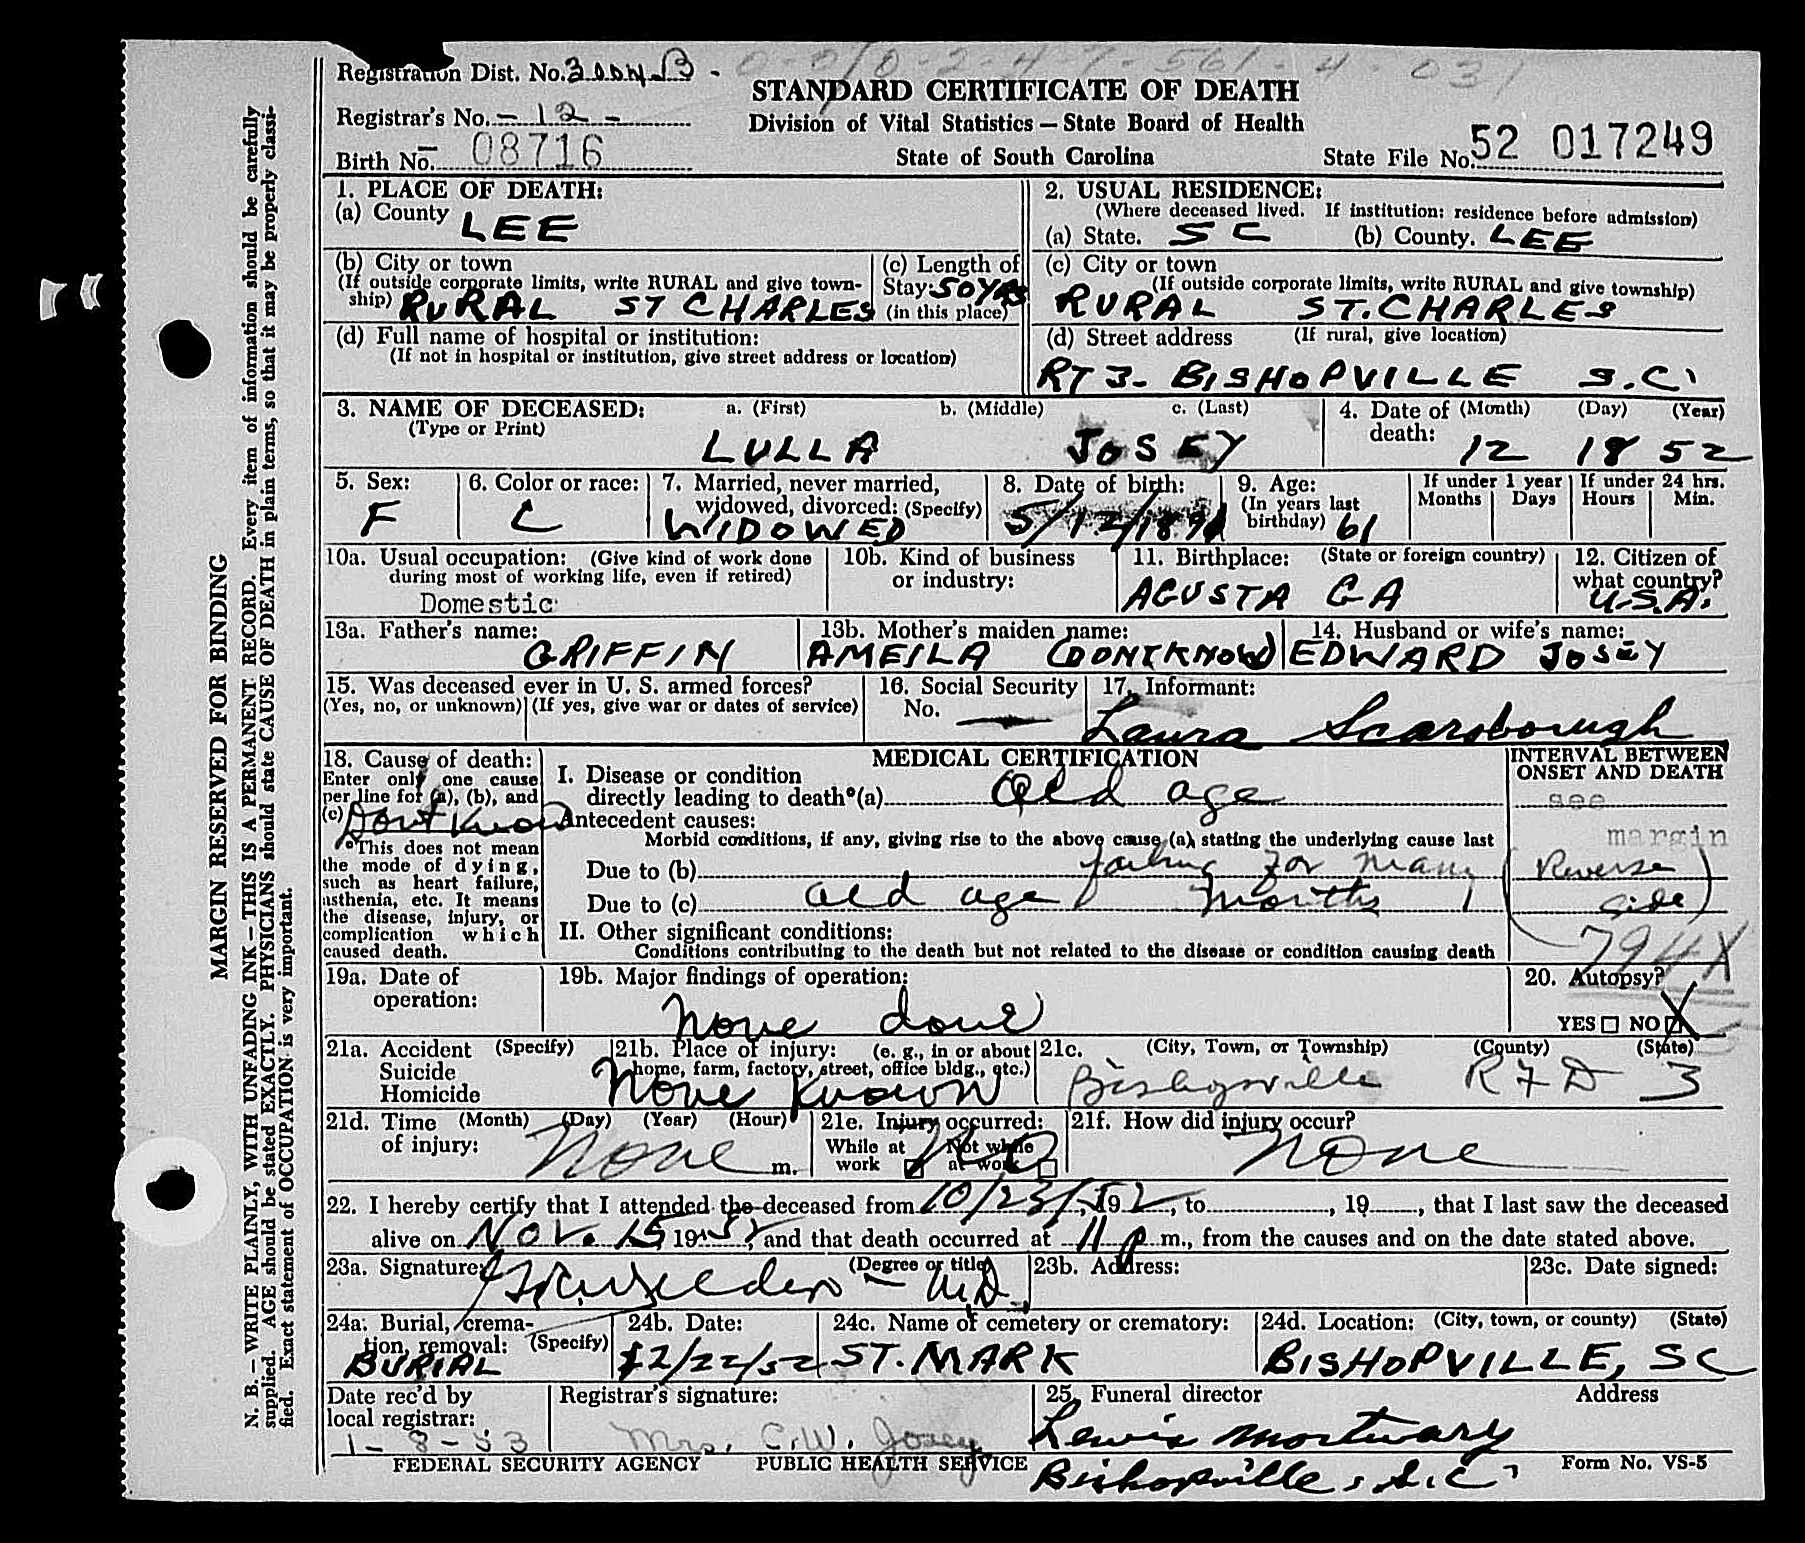 Registration Dist. No.
STANDARD CERTIFICATE OF DEATH
Registrar's No. - 12 -
Division of Vital Statistics — State Board of Health
Birth No. 08716
State of South Carolina
State File No. 52 017249
MARGIN RESERVED FOR BINDING
N. B. — WRITE PLAINLY, WITH UNFADING INK — THIS IS A PERMANENT RECORD. Every item of information should be carefully
supplied. AGE should be stated EXACTLY. PHYSICIANS should state CAUSE OF DEATH in plain terms, so that it may be properly classi-
fied. Exact statement of OCCUPATION is very important.
1. PLACE OF DEATH:
(a) County LEE
(b) City or town
(If outside corporate limits, write RURAL and give town-
ship) RURAL ST CHARLES
(c) Length of
Stay: 50 YRS
(in this place)
(d) Full name of hospital or institution:
(If not in hospital or institution, give street address or location)
2. USUAL RESIDENCE:
(Where deceased lived. If institution: residence before admission)
(a) State. SC (b) County. LEE
(c) City or town
(If outside corporate limits, write RURAL and give township)
RURAL ST. CHARLES
(d) Street address (If rural, give location)
RT 3- BISHOPVILLE S.C.
3. NAME OF DECEASED: a. (First) b. (Middle) c. (Last)
(Type or Print)
LULLA JOSEY
4. Date of (Month) (Day) (Year)
death:
12 18 52
5. Sex:
F
6. Color or race:
C
7. Married, never married,
widowed, divorced: (Specify)
WIDOWED
8. Date of birth:
5/12/1891
9. Age:
(In years last
birthday) 61
If under 1 year
Months Days
If under 24 hrs.
Hours Min.
10a. Usual occupation: (Give kind of work done
during most of working life, even if retired)
Domestic
10b. Kind of business
or industry:
11. Birthplace: (State or foreign country)
AGUSTA GA
12. Citizen of
what country?
U.S.A.
13a. Father's name:
GRIFFIN
13b. Mother's maiden name:
AMEILA (DONT KNOW)
14. Husband or wife's name:
EDWARD JOSEY
15. Was deceased ever in U. S. armed forces?
(Yes, no, or unknown) (If yes, give war or dates of service)
16. Social Security
No. —
17. Informant:
Laura Scarsborough
18. Cause of death:
Enter only one cause
per line for (a), (b), and
(c) Dont Know
*This does not mean
the mode of dying,
such as heart failure,
asthenia, etc. It means
the disease, injury, or
complication which
caused death.
MEDICAL CERTIFICATION
I. Disease or condition
directly leading to death*(a) Old age
Antecedent causes:
Morbid conditions, if any, giving rise to the above cause (a), stating the underlying cause last
Due to (b) failing for many
Due to (c) old age months
II. Other significant conditions:
Conditions contributing to the death but not related to the disease or condition causing death
INTERVAL BETWEEN
ONSET AND DEATH
see
margin
(Reverse
side)
794X
19a. Date of
operation:
19b. Major findings of operation:
None done
20. Autopsy?
YES NO X
21a. Accident (Specify)
Suicide
Homicide
21b. Place of injury: (e. g., in or about
home, farm, factory, street, office bldg., etc.)
None Known
21c. (City, Town, or Township) (County) (State)
Bishopville RFD 3
21d. Time (Month) (Day) (Year) (Hour)
of injury: None m.
21e. Injury occurred:
While at Not while
work at work
No
21f. How did injury occur?
None
22. I hereby certify that I attended the deceased from 10/23/, 1952, to , 19 , that I last saw the deceased
alive on Nov. 15 1952, and that death occurred at 11 p m., from the causes and on the date stated above.
23a. Signature: (Degree or title)
M.D.
23b. Address:
23c. Date signed:
24a. Burial, crema-
tion, removal: (Specify)
BURIAL
24b. Date:
12/22/52
24c. Name of cemetery or crematory:
ST. MARK
24d. Location: (City, town, or county) (State)
BISHOPVILLE, SC
Date rec'd by
local registrar:
1-8-53
Registrar's signature:
Mrs. C.W. Josey
25. Funeral director Address
Lewis Mortuary
Bishopville, S.C.
FEDERAL SECURITY AGENCY PUBLIC HEALTH SERVICE
Form No. VS-5